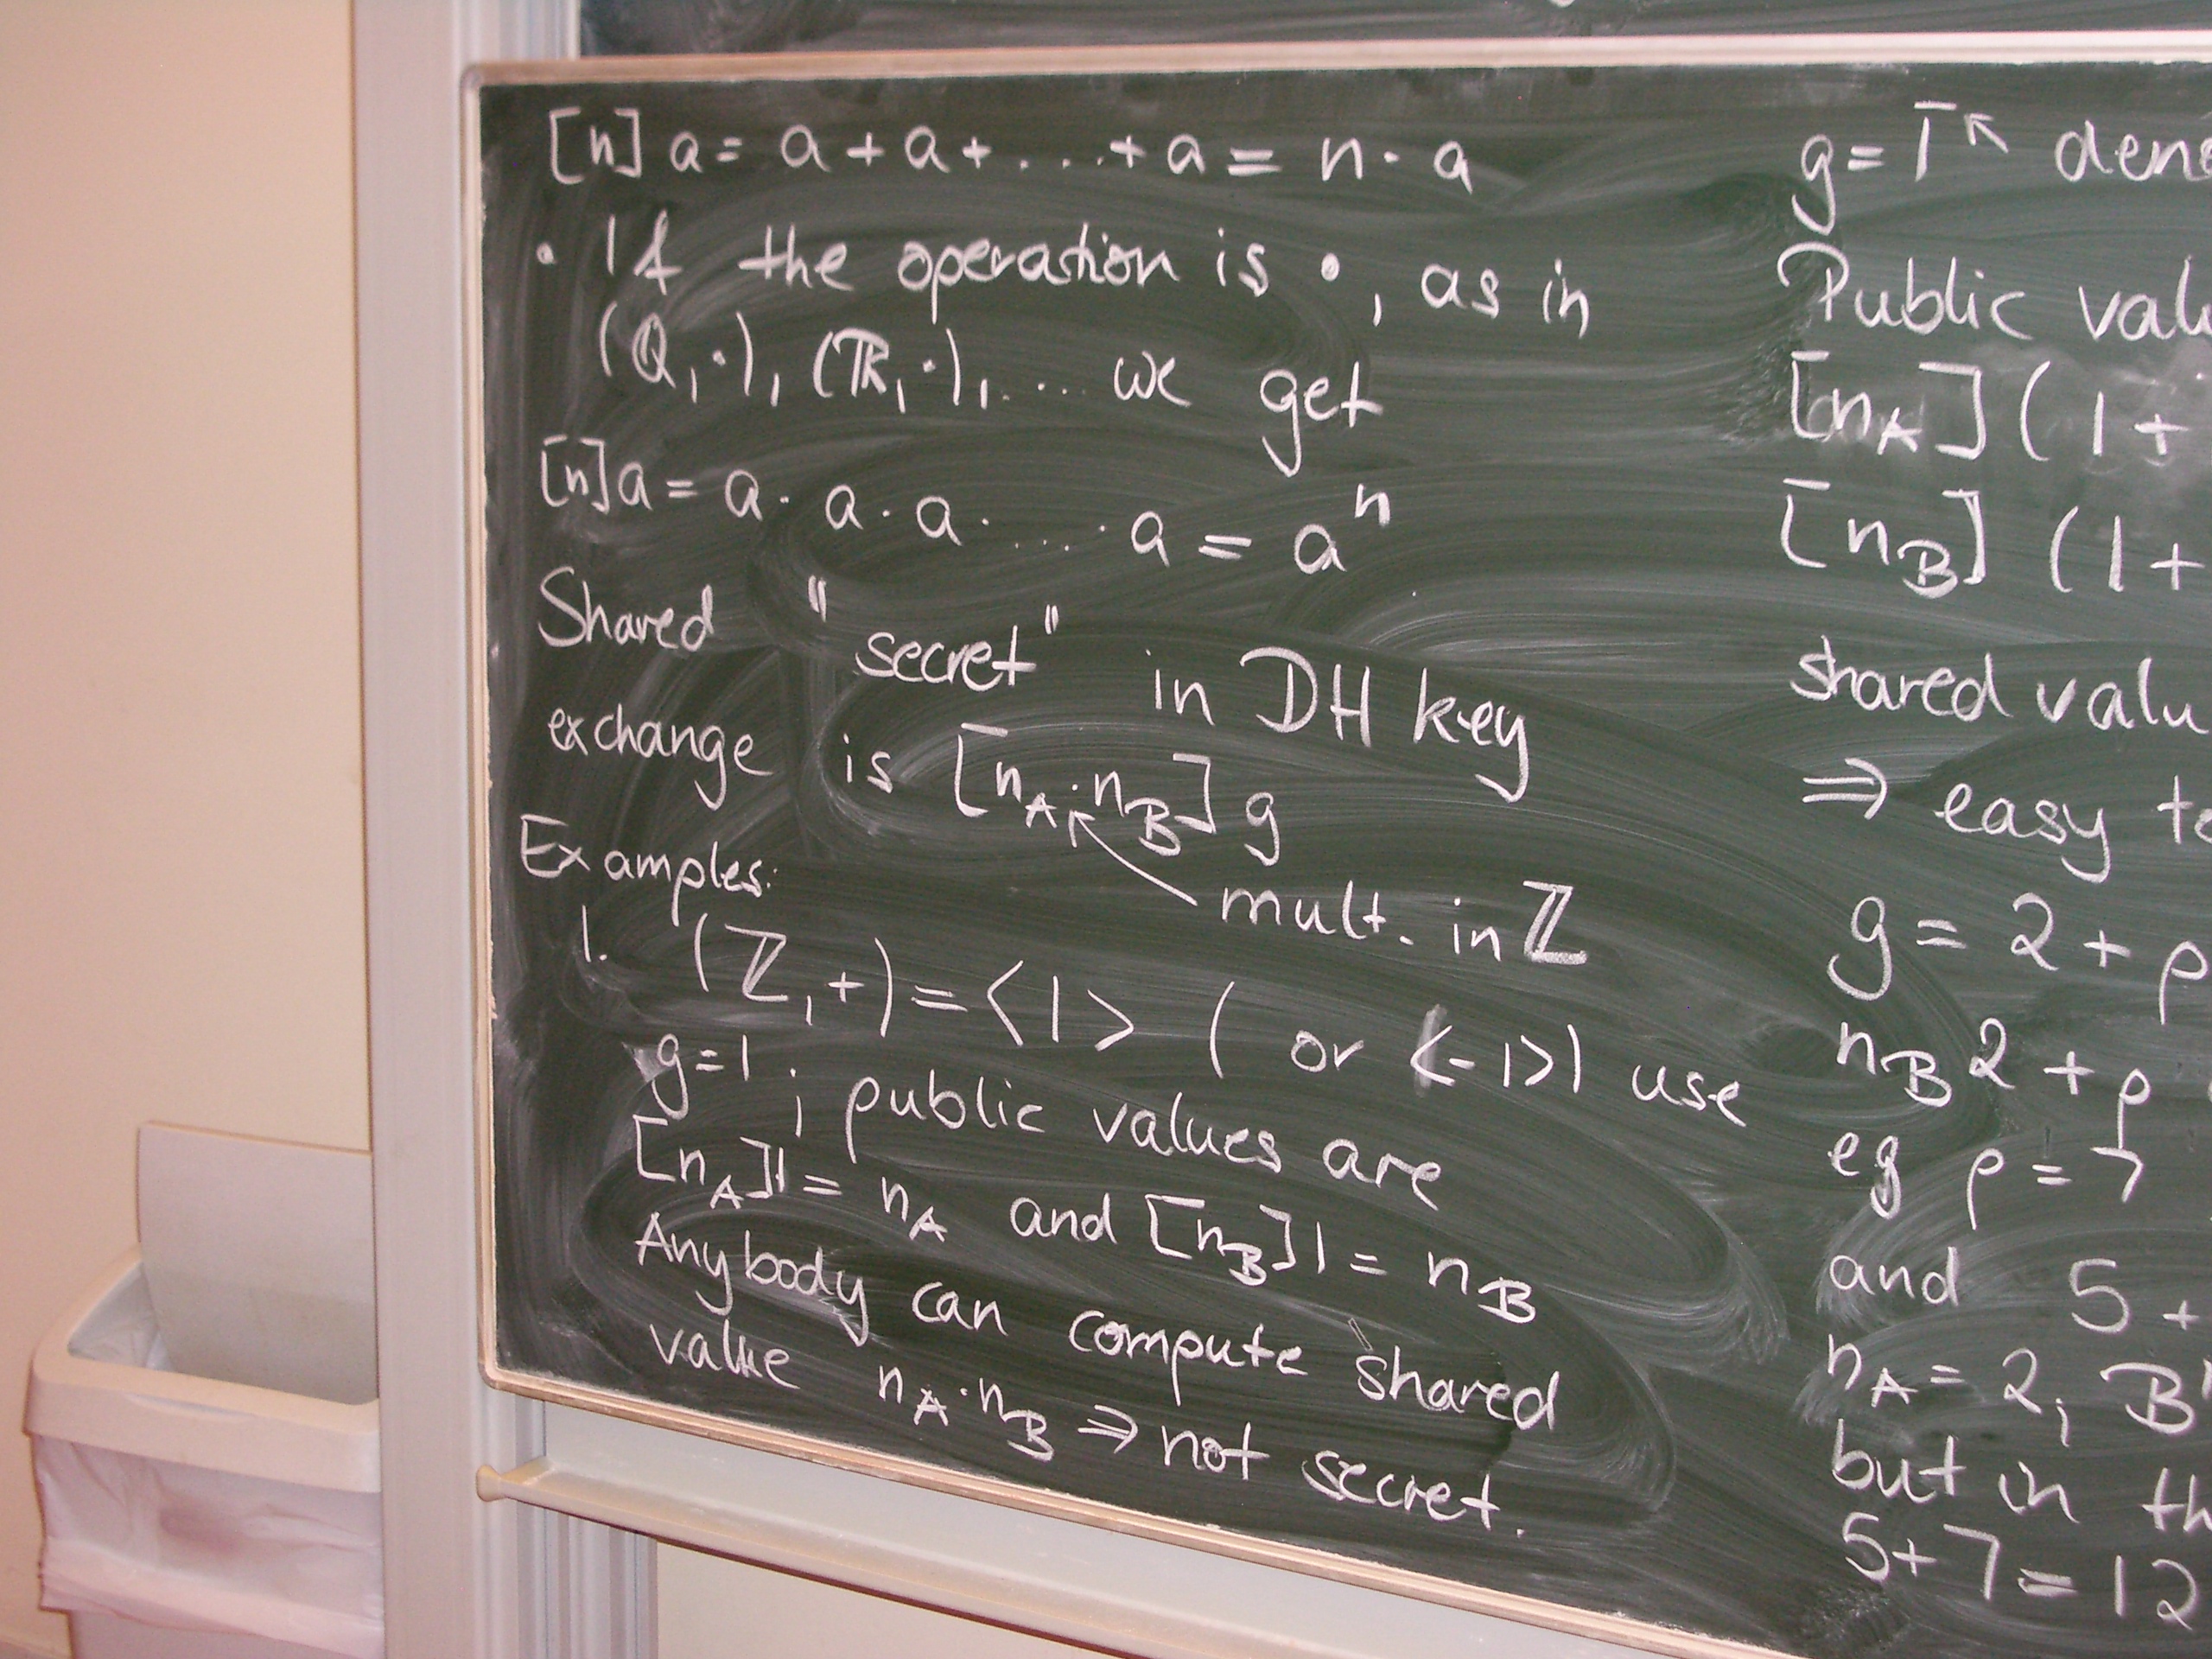 [n] a = a + a + . . . + a = n · a
· If the operation is ·, as in
(ℚ, ·), (ℝ, ·), ... we get
[n] a = a · a · a · .... · a = aⁿ
Shared "secret" in DH key
exchange is [n_A · n_B] g
mult. in ℤ
Examples:
1. (ℤ, +) = <1> ( or <-1>) use
g = 1 ; public values are
[n_A]1 = n_A and [n_B]1 = n_B
Anybody can compute shared
value n_A · n_B ⇒ not secret.
g = 1̄ ↖
Public
[n_A] (1 +
[n_B] (1 +
shared
⇒ easy
g = 2 + p
n_B 2 + p
eg p = 7
and 5 +
n_A = 2;
but in
5 + 7 = 12